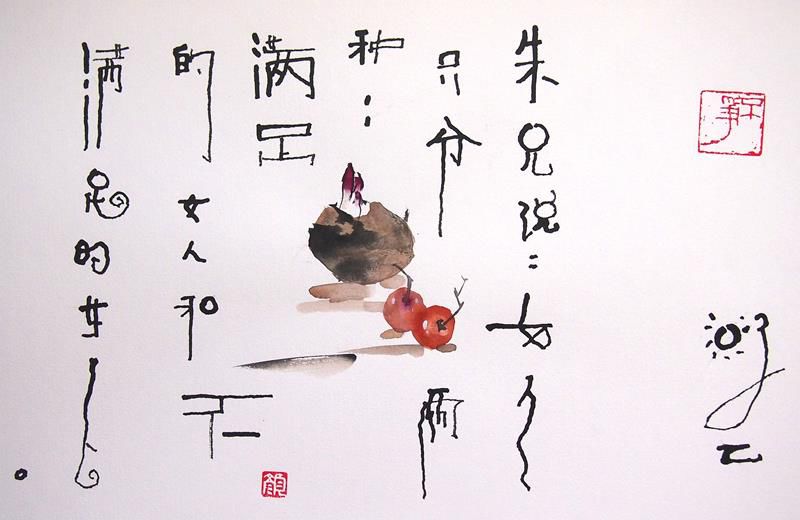 朱兄说：女人
只分两
种：
满足
的女人和不
满足的女人。
顏